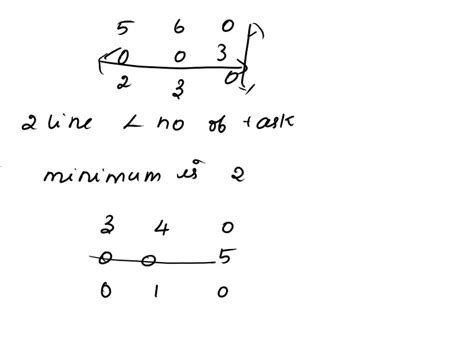 5 6 0
0 0 3
2 3 0
2 line < no of task
minimum is 2
3 4 0
0 0 5
0 1 0